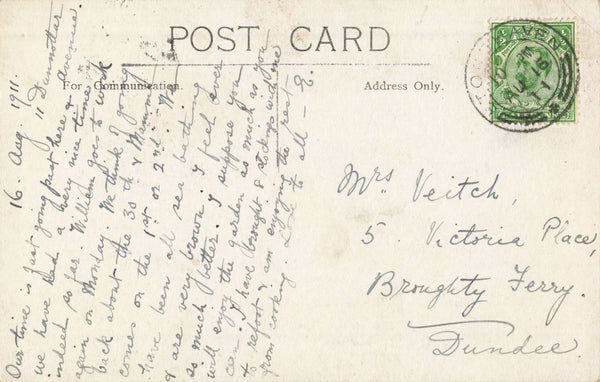 POST CARD
For Communication.
Address Only.
11 Dunnotter
16. Aug. 1911. Avenue.
Our time is just going past here &
we have had a very nice time
indeed so far. William goes to work
again on Monday. We think of going
back about the 30th & Mammy
comes on the 1st or 2nd. We
have been all sea bathing
& are very brown. I feel ever
so much better. I suppose you
will enjoy the garden as much as you
can. I have brought 8 stockings with me
to refoot & am enjoying the rest
from cooking. Love to all - E.
Mrs Veitch,
5. Victoria Place,
Broughty Ferry.
Dundee.